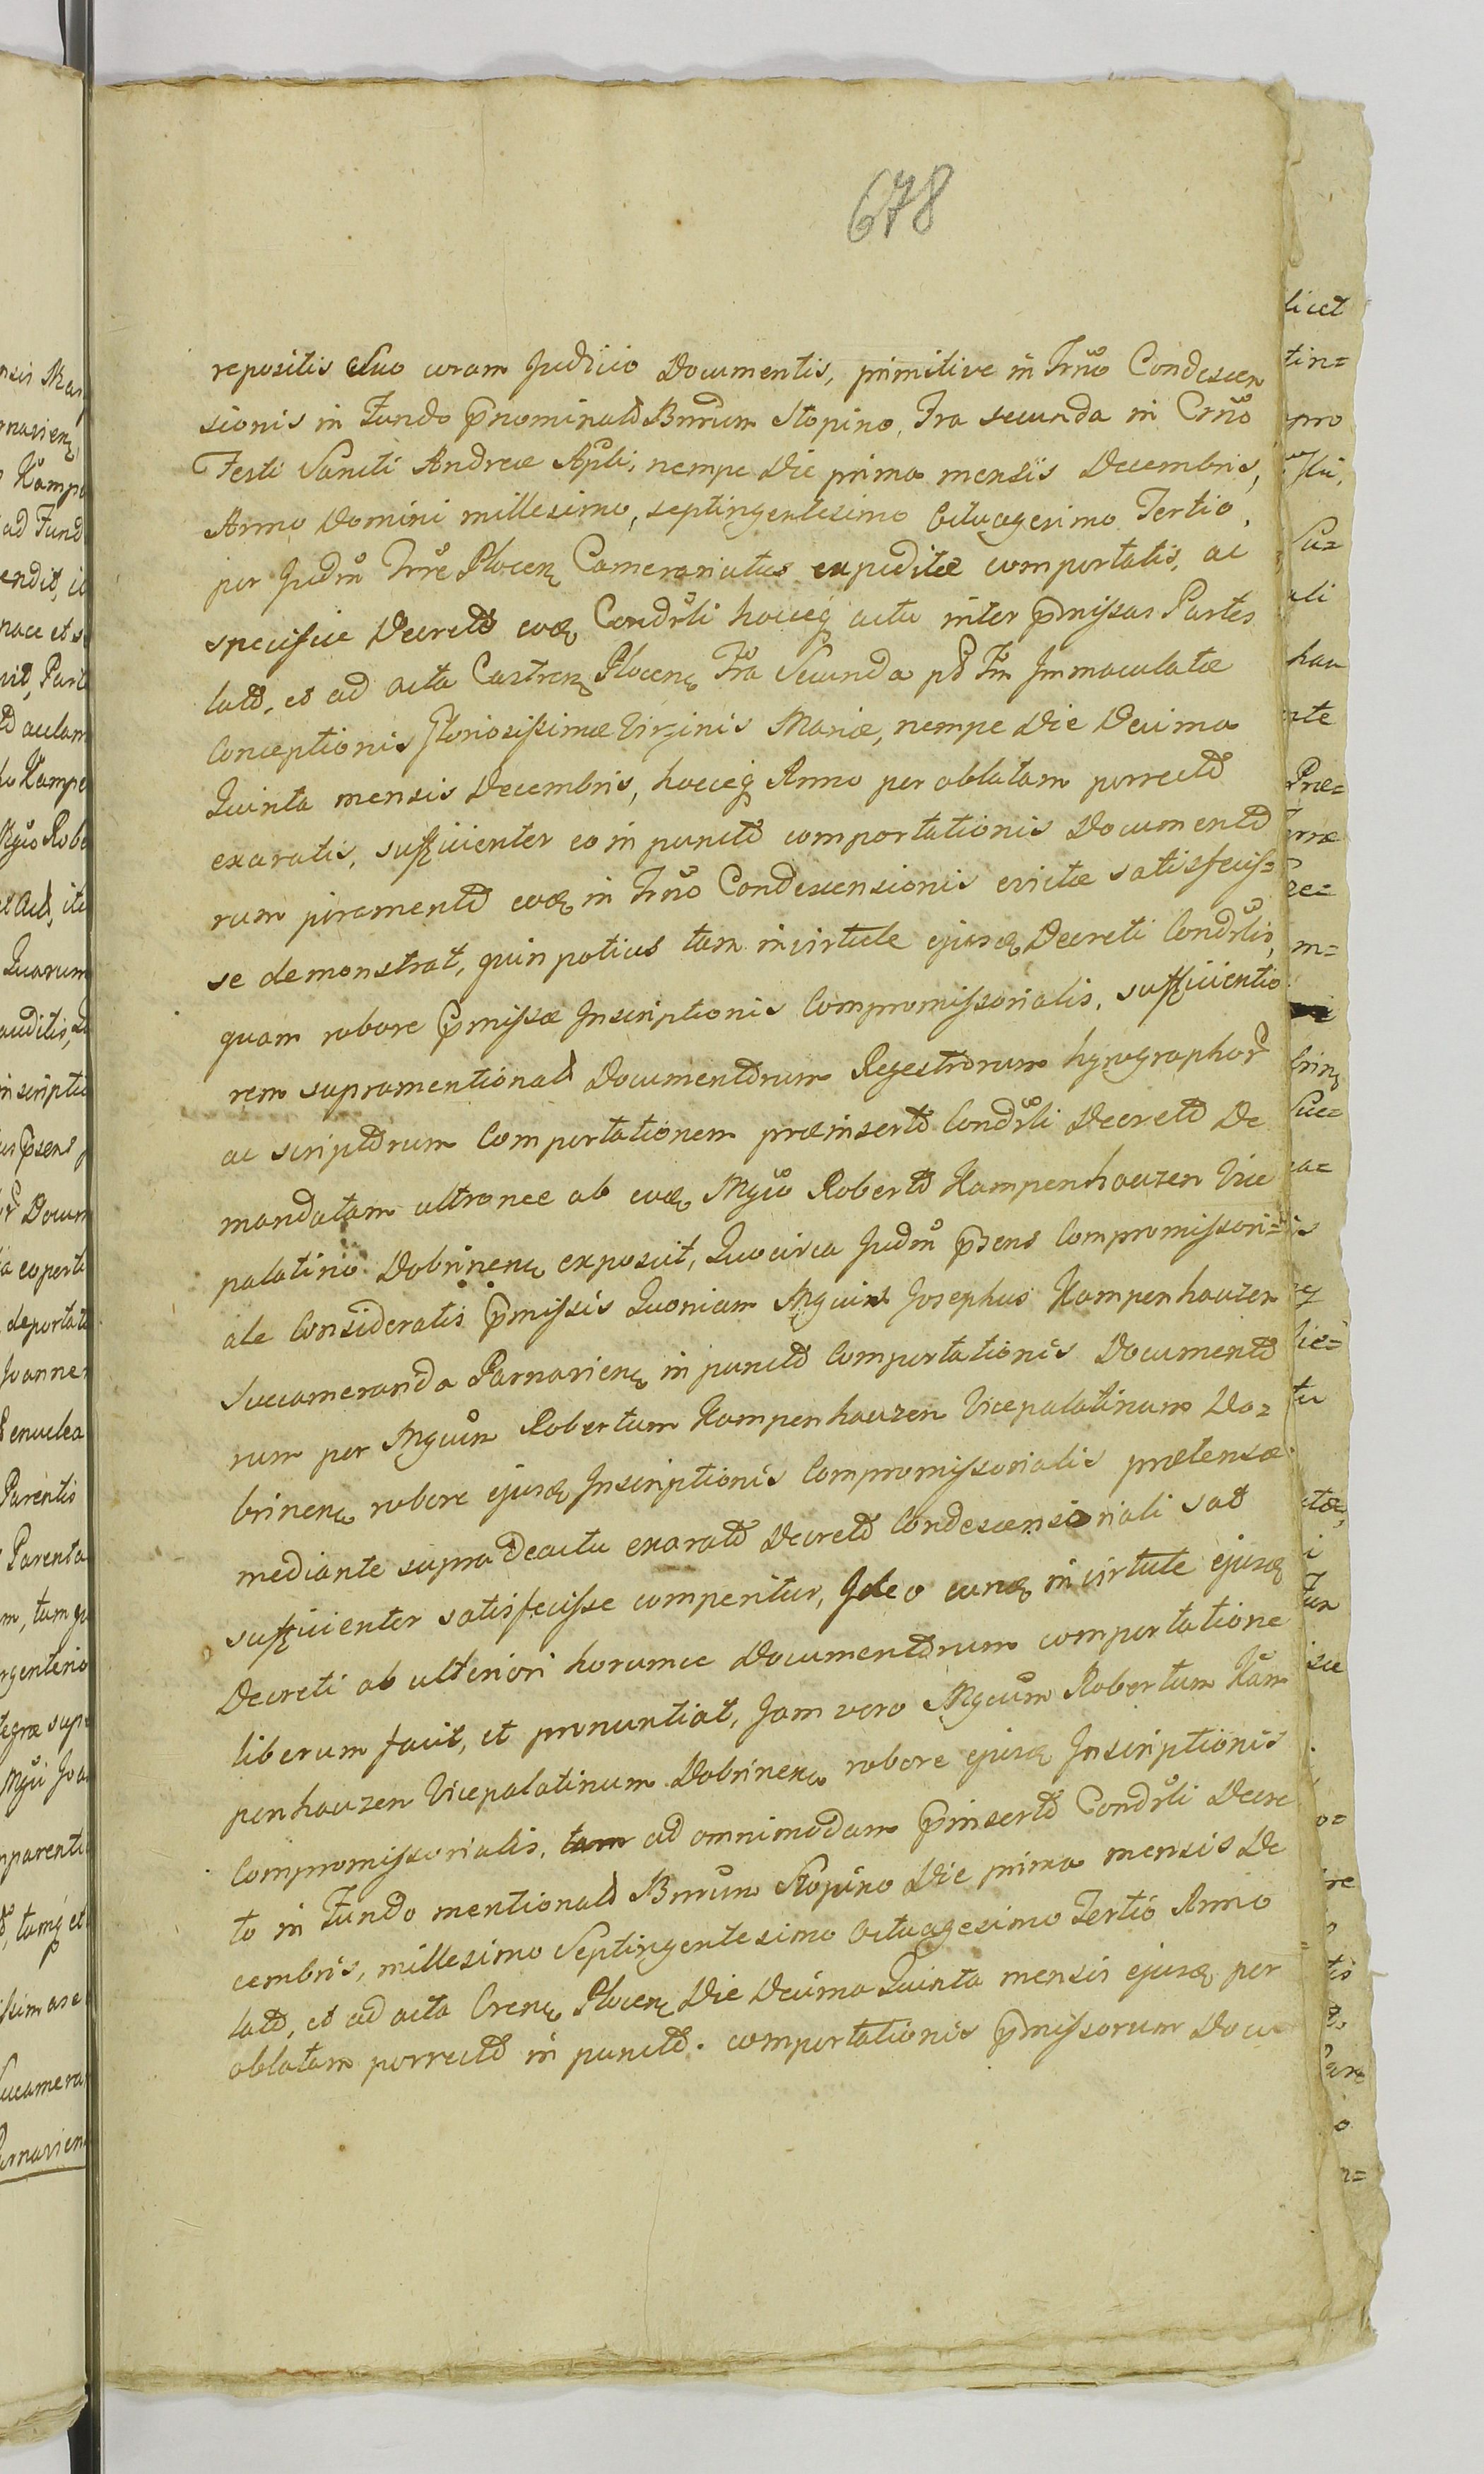 678
repositis suo coram Judicio Documentis, primitive in Trno Condescen
sionis in Fundo pnominatt Bnrum Stopino, Fra secunda in Crno
Festi Sancti Andreæ Apli, nempe die prima mensis Decembris,
Anno Domini millesimo, septingentesimo Octuagesimo Tertio,
per Judm Trre Plocen Camerariatus expeditæ comportatis, ac
specifice Decreto eod Condrli hocceq actu inter pmissas Partes
lato, et ad acta Castren Plocen Fra Secunda pt Fm Immaculatæ
Conceptionis gloriosissimæ Virginis Mariæ, nempe die Decima
Quinta mensis Decembris, hocceq Anno per oblatam porrecto
exaratis, sufficienter eo in puncto comportationis Documento
rum juramento eod in Trno Condescensionis evictæ satisfecis=
se demonstrat, quin potius tam in virtute ejusd Decreti Condrlis,
quam robore pmissæ Inscriptionis Compromissorialis, sufficientio
rem supramentionat Documentorum Regestrorum hyrographor
ac scriptorum Comportationem præinserto Condrli Decreto De
mandatam ultronee ab eod Mgco Roberto Kampenhauzen Vice
palatino Dobrinen exposcit, Quocirca Judm psens Compromissori=
ale Consideratis pmissis Quoniam Mgcus Josephus Kampenhauzen
Succamerarida Parnavien in puncto Comportationis Documento
rum per Mgcum Robertum Kampenhauzen Vicepalatinum Do=
brinen robore ejusd Inscriptionis Compromissorialis prætensæ
mediante supra de actu exarato Decreto Condescensionali sat
sufficienter satisfecisse comperitur, Ideo eund in virtute ejusd
Decreti ab ulteriori horumce Documentorum comportatione
liberum facit, et pronuntiat, Jam vero Mgcum Robertum Kam
penhauzen Vicepalatinum Dobrinen robore ejusd Inscriptionis
Compromissorialis, tam ad omnimodam pinserto Condrli Decre
to in Fundo mentionat Bnrum Stopino die prima mensis De
cembris, millesimo Septingentesimo Octuagesimo Tertio Anno
lato, et ad acta Cren Plocen Die Decima Quinta mensis ejusd per
oblatam porrecto in puncto comportationis pmissorum Docu